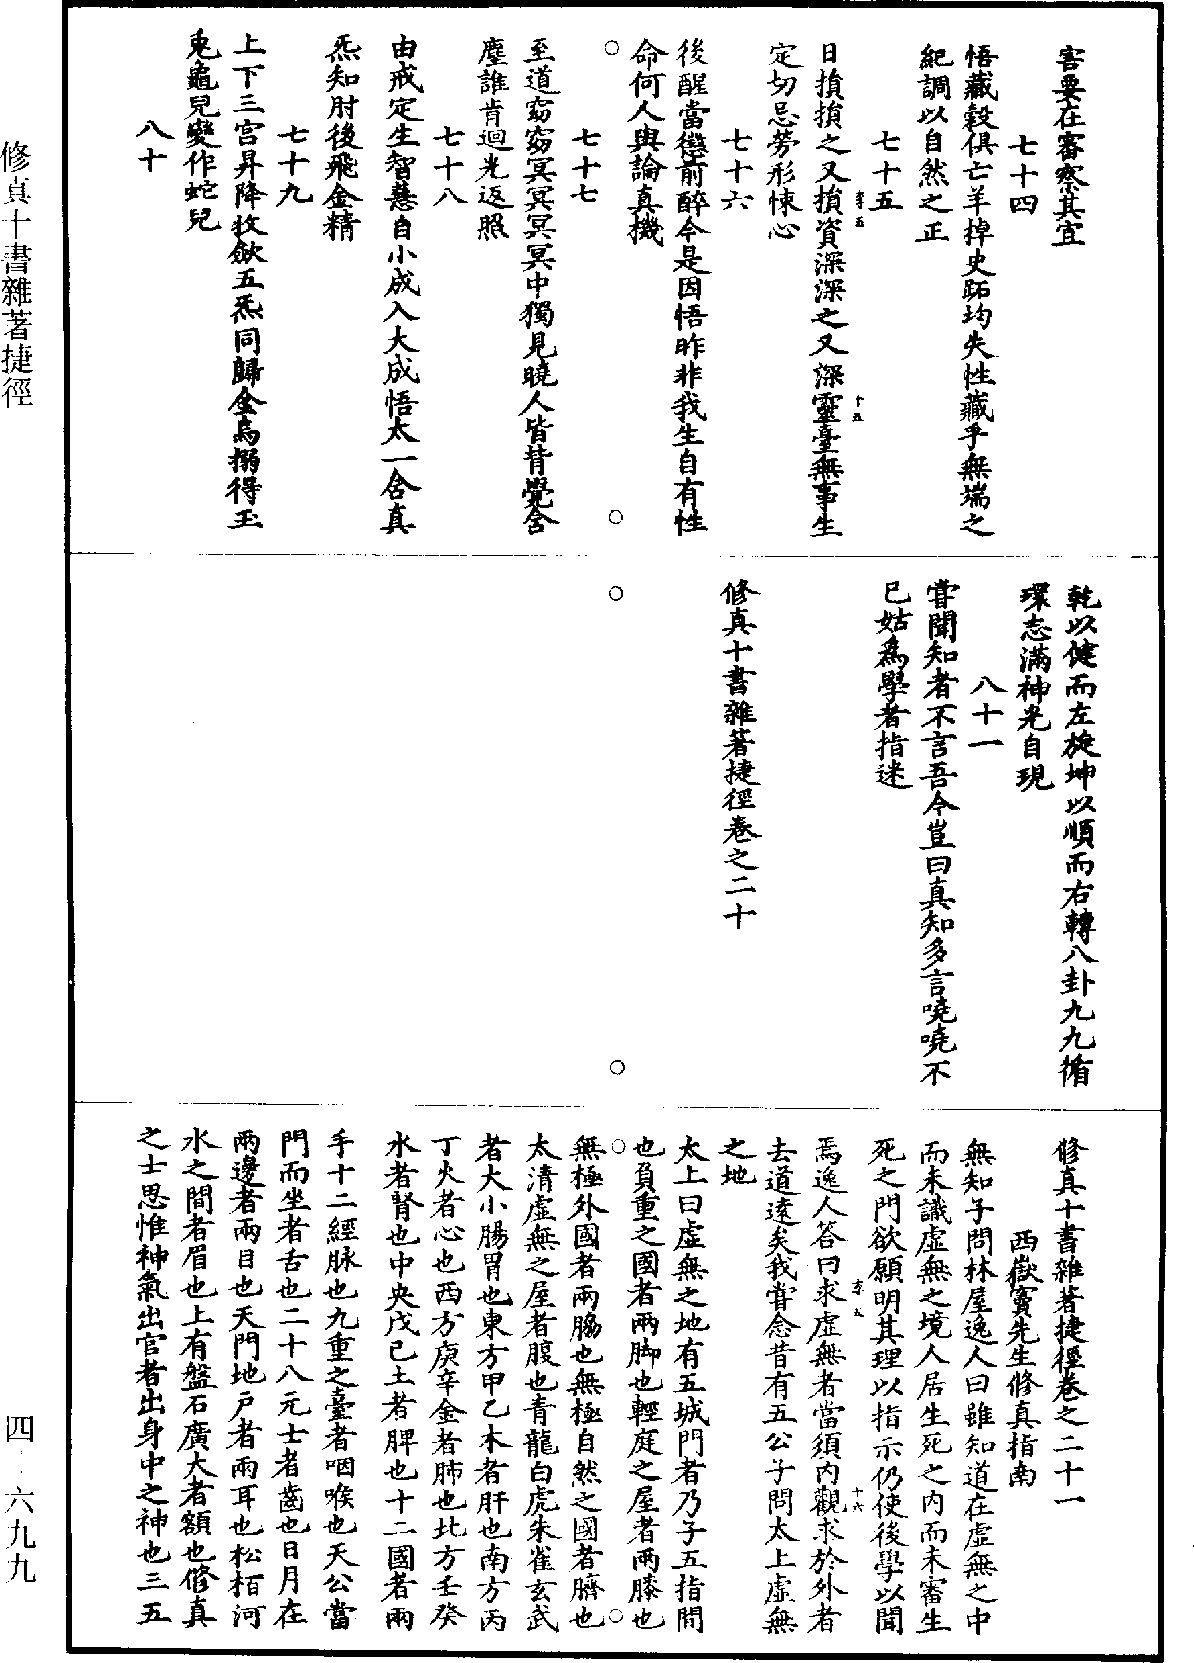 害要在審察其宜
七十四
悟藏穀俱亡羊掉史跖均失性藏乎無端之
紀調以自然之正
七十五
日損損之又損資深深之又深靈臺無事生
定切忌勞形悚心
七十六
後醒當懲前醉今是因悟昨非我生自有性
命何人與論真機
七十七
至道窈窈冥冥冥冥中獨見曉人皆背覺舍
塵誰肯迴光返照
七十八
由戒定生智慧自小成入大成悟太一含真
炁知肘後飛金精
七十九
上下三宮昇降牧歛五炁同歸金烏搦得玉
兎龜兒變作蛇兒
八十
乾以健而左旋坤以順而右轉八卦九九循
環志滿神光自現
八十一
甞聞知者不言吾今豈曰真知多言嘵嘵不
已姑爲學者指迷
修真十書雜著捷徑卷之二十
修真十書雜著捷徑卷之二十一
西嶽竇先生修真指南
無知子問林屋逸人曰雖知道在虛無之中
而未識虛無之境人居生死之內而未審生
死之門欲願明其理以指示仍使後學以聞
焉逸人答曰求虛無者當須內觀求於外者
去道遠矣我甞念昔有五公子問太上虛無
之地
太上曰虛無之地有五城門者乃子五指間
也負重之國者兩脚也輕庭之屋者兩膝也
無極外國者兩腸也無極自然之國者臍也
太清虛無之屋者腹也青龍白虎朱雀玄武
者大小腸胃也東方甲乙木者肝也南方丙
丁火者心也西方庚辛金者肺也北方壬癸
水者腎也中央戊己土者脾也十二國者兩
手十二經脉也九重之臺者咽喉也天公當
門而坐者舌也二十八元士者齒也日月在
兩邊者兩目也天門地户者兩耳也松栢河
水之間者眉也上有盤石廣大者額也修真
之士思惟神氣出官者出身中之神也三五
修真十書雜著捷徑
四·六九九